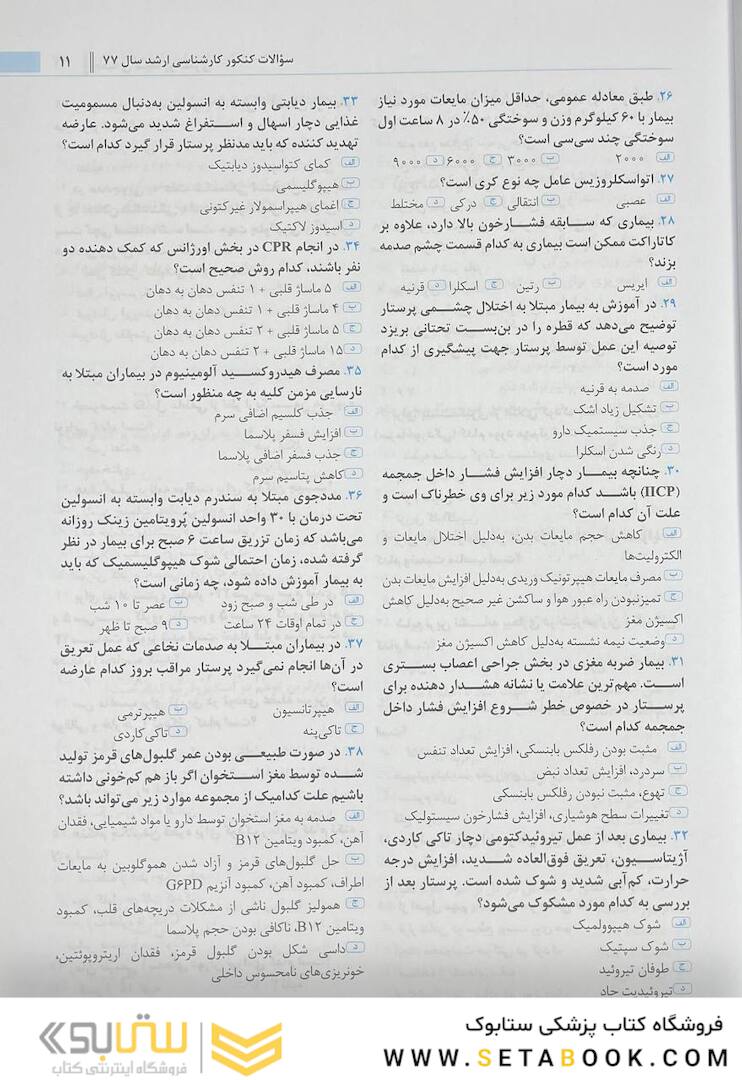 سؤالات کنکور کارشناسی ارشد سال ۷۷ ‖ ۱۱
۲۶. طبق معادله عمومی، حداقل میزان مایعات مورد نیاز
بیمار با ۶۰ کیلوگرم وزن و سوختگی ۵۰٪ در ۸ ساعت اول
سوختگی چند سی‌سی است؟
الف ۲۰۰۰ ب ۳۰۰۰ ج ۶۰۰۰ د ۹۰۰۰
۲۷. اتواسکلروزیس عامل چه نوع کری است؟
الف عصبی ب انتقالی ج درکی د مختلط
۲۸. بیماری که سابقه فشارخون بالا دارد، علاوه بر
کاتاراکت ممکن است بیماری به کدام قسمت چشم صدمه
بزند؟
الف ایریس ب رتین ج اسکلرا د قرنیه
۲۹. در آموزش به بیمار مبتلا به اختلال چشمی پرستار
توضیح می‌دهد که قطره را در بن‌بست تحتانی بریزد
توصیه این عمل توسط پرستار جهت پیشگیری از کدام
مورد است؟
الف صدمه به قرنیه
ب تشکیل زیاد اشک
ج جذب سیستمیک دارو
د رنگی شدن اسکلرا
۳۰. چنانچه بیمار دچار افزایش فشار داخل جمجمه
(IICP) باشد کدام مورد زیر برای وی خطرناک است و
علت آن کدام است؟
الف کاهش حجم مایعات بدن، به‌دلیل اختلال مایعات و
الکترولیت‌ها
ب مصرف مایعات هیپرتونیک وریدی به‌دلیل افزایش مایعات بدن
ج تمیزنبودن راه عبور هوا و ساکشن غیر صحیح به‌دلیل کاهش
اکسیژن مغز
د وضعیت نیمه نشسته به‌دلیل کاهش اکسیژن مغز
۳۱. بیمار ضربه مغزی در بخش جراحی اعصاب بستری
است. مهم‌ترین علامت یا نشانه هشدار دهنده برای
پرستار در خصوص خطر شروع افزایش فشار داخل
جمجمه کدام است؟
الف مثبت بودن رفلکس بابنسکی، افزایش تعداد تنفس
ب سردرد، افزایش تعداد نبض
ج تهوع، مثبت نبودن رفلکس بابنسکی
د تغییرات سطح هوشیاری، افزایش فشارخون سیستولیک
۳۲. بیماری بعد از عمل تیروئیدکتومی دچار تاکی کاردی،
آژیتاسیون، تعریق فوق‌العاده شدید، افزایش درجه
حرارت، کم‌آبی شدید و شوک شده است. پرستار بعد از
بررسی به کدام مورد مشکوک می‌شود؟
الف شوک هیپوولمیک
ب شوک سپتیک
ج طوفان تیروئید
د تیروئیدیت حاد
۳۳. بیمار دیابتی وابسته به انسولین به‌دنبال مسمومیت
غذایی دچار اسهال و استفراغ شدید می‌شود. عارضه
تهدید کننده که باید مدنظر پرستار قرار گیرد کدام است؟
الف کمای کتواسیدوز دیابتیک
ب هیپوگلیسمی
ج اغمای هیپراسمولار غیرکتونی
د اسیدوز لاکتیک
۳۴. در انجام CPR در بخش اورژانس که کمک دهنده دو
نفر باشند، کدام روش صحیح است؟
الف ۵ ماساژ قلبی + ۱ تنفس دهان به دهان
ب ۴ ماساژ قلبی + ۱ تنفس دهان به دهان
ج ۵ ماساژ قلبی + ۲ تنفس دهان به دهان
د ۱۵ ماساژ قلبی + ۲ تنفس دهان به دهان
۳۵. مصرف هیدروکسید آلومینیوم در بیماران مبتلا به
نارسایی مزمن کلیه به چه منظور است؟
الف جذب کلسیم اضافی سرم
ب افزایش فسفر پلاسما
ج جذب فسفر اضافی پلاسما
د کاهش پتاسیم سرم
۳۶. مددجوی مبتلا به سندرم دیابت وابسته به انسولین
تحت درمان با ۳۰ واحد انسولین پُرویتامین زینک روزانه
می‌باشد که زمان تزریق ساعت ۶ صبح برای بیمار در نظر
گرفته شده، زمان احتمالی شوک هیپوگلیسمیک که باید
به بیمار آموزش داده شود، چه زمانی است؟
الف در طی شب و صبح زود ب عصر تا ۱۰ شب
ج در تمام اوقات ۲۴ ساعت د ۹ صبح تا ظهر
۳۷. در بیماران مبتلا به صدمات نخاعی که عمل تعریق
در آن‌ها انجام نمی‌گیرد پرستار مراقب بروز کدام عارضه
است؟
الف هیپرتانسیون ب هیپرترمی
ج تاکی‌پنه د تاکی‌کاردی
۳۸. در صورت طبیعی بودن عمر گلبول‌های قرمز تولید
شده توسط مغز استخوان اگر باز هم کم‌خونی داشته
باشیم علت کدامیک از مجموعه موارد زیر می‌تواند باشد؟
الف صدمه به مغز استخوان توسط دارو یا مواد شیمیایی، فقدان
آهن، کمبود ویتامین B۱۲
ب حل گلبول‌های قرمز و آزاد شدن هموگلوبین به مایعات
اطراف، کمبود آهن، کمبود آنزیم G۶PD
ج همولیز گلبول ناشی از مشکلات دریچه‌های قلب، کمبود
ویتامین B۱۲، ناکافی بودن حجم پلاسما
د داسی شکل بودن گلبول قرمز، فقدان اریتروپوئتین،
خونریزی‌های نامحسوس داخلی
فروشگاه کتاب پزشکی ستابوک
WWW.SETABOOK.COM
ستابوک
فروشگاه اینترنتی کتاب